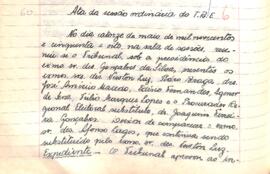 60
6
Ata da sessão ordinária do T.R.E.
No dia catorze de maio de mil novecentos
e cinquenta e oito, na sala de sessões, reu-
niu-se o Tribunal, sob a presidência do
exmo sr. des. Gonçalves da Silva, presentes os
exmos srs. des. Newton Luz, Braga, drs.
José Américo Macedo, Fernandes,
de Sena, Túlio Marques Lopes e o Procurador Re-
gional Eleitoral substituto, dr. Joaquim Ferreira
Gonçalves. Deixou de comparecer o exmo.
sr. des. Afonso Lages, que continua sendo
substituído pelo exmo. sr. des. Newton Luz.
Expediente — O Tribunal aprovou as ins-